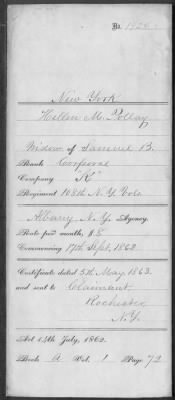 No.
New York
Hellen M.
Widow of Samuel B.
Rank Corporal
Company "K"
Regiment 108th N.Y. Vols
Albany N.Y. Agency.
Rate per month, $8
Commencing 17th Sept. 1862
Certificate dated 5th May 1863.
and sent to Claimant
Rochester
N.Y.
Act 14th July, 1862.
Book A Vol. 1 Page 72